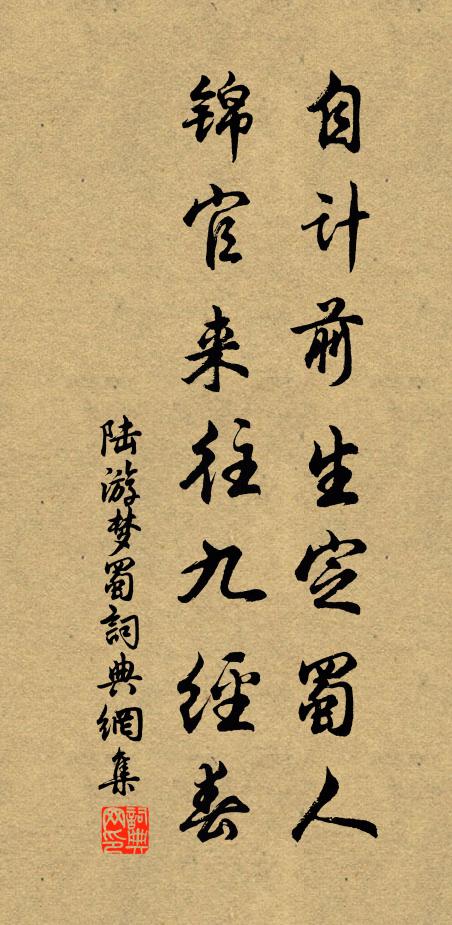 自计前生定蜀人
锦官来往九經春
陆游梦蜀詞典網集
詞典网印